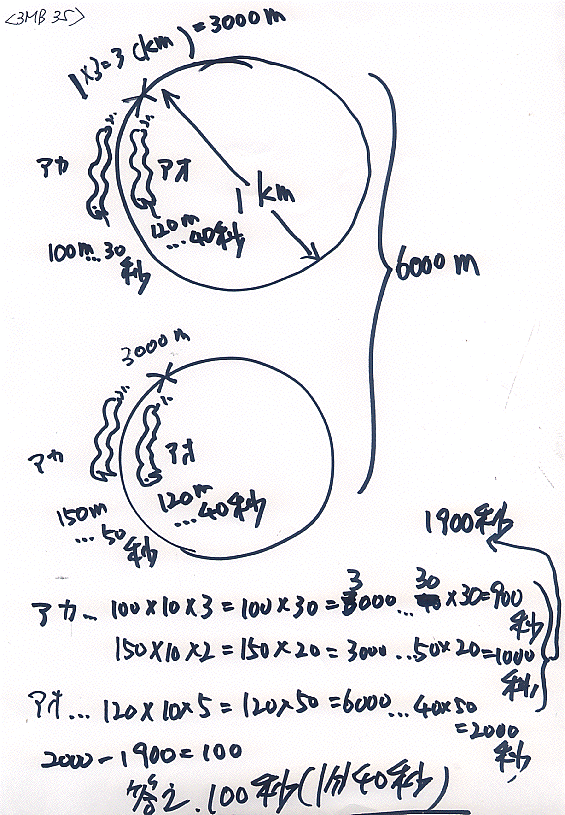 <3MB 35>
1×3=3 (km) =3000m
アカ
アオ
1 km
100m…30秒
120m
…40秒
6000m
3000m
アカ
アオ
150m
…50秒
120m
…40秒
1900秒
アカ… 100×10×3=100×30=3000…30×30=900秒
150×10×2=150×20=3000…50×20=1000秒
アオ… 120×10×5=120×50=6000…40×50
=2000秒
2000-1900=100
答え.100秒(1分40秒)